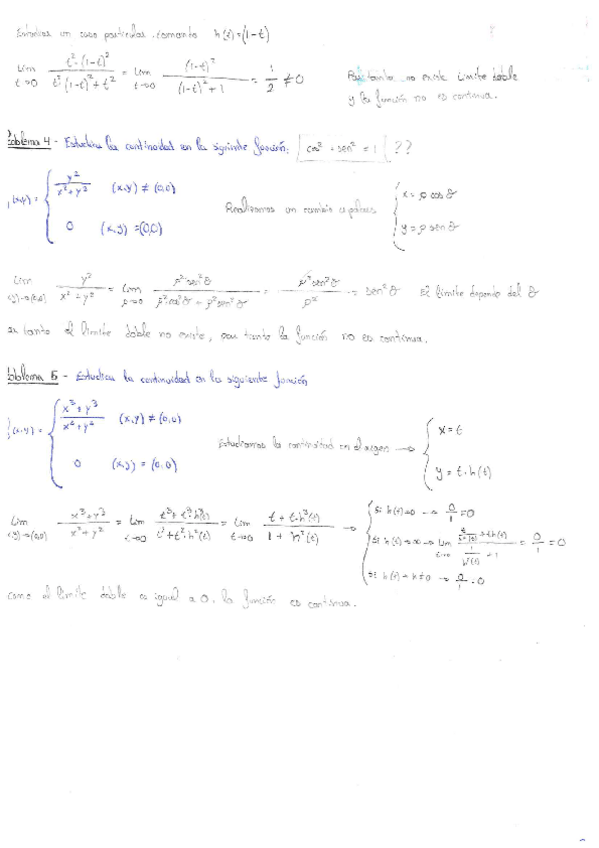 Estudiar un caso particular. tomamos h(t)=(1-t)
lim t→0 t²·(1-t)² / t²·(1-t)²+t² = lim t→0 (1-t)² / (1-t)²+1 = 1/2 ≠ 0
Por tanto no existe límite doble
y la función no es continua.
Problema 4 - Estudiar la continuidad en la siguiente función. cos² + sen² = 1 ??
f(x,y) = { y² / x²+y² (x,y) ≠ (0,0)
0 (x,y) = (0,0)
Realizamos un cambio a polares { x = ρ cos θ
y = ρ sen θ
lim (x,y)→(0,0) y² / x²+y² = lim ρ→0 ρ² sen² θ / ρ² cos² θ + ρ² sen² θ = ρ² sen² θ / ρ² = sen² θ El límite depende del θ
tanto el límite doble no existe, por tanto la función no es continua.
Problema 5 - Estudiar la continuidad en la siguiente función
f(x,y) = { x³+y³ / x²+y² (x,y) ≠ (0,0)
0 (x,y) = (0,0)
Estudiamos la continuidad en el origen → { x = t
y = t·h(t)
lim (x,y)→(0,0) x³+y³ / x²+y² = lim t→0 t³+t³·h³(t) / t²+t²·h²(t) = lim t→0 t+t·h³(t) / 1+h²(t) →
si h(t)→0 → 0/1 = 0
si h(t)→∞ → lim t→0 = 0/1 = 0
si h(t)→h≠0 → 0/1 = 0
como el límite doble es igual a 0, la función es continua.